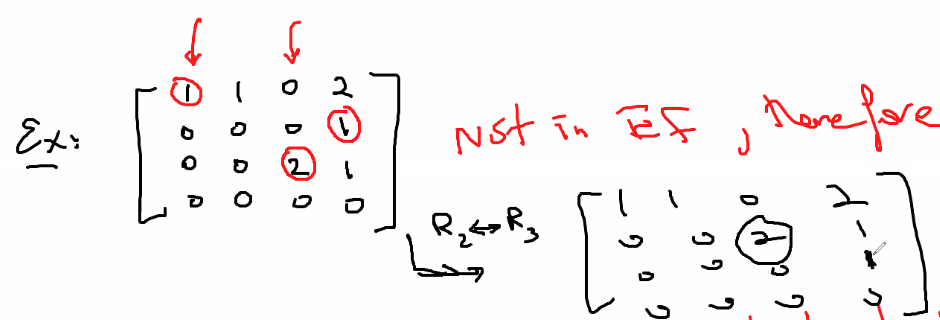 Ex: [1 1 0 2
0 0 0 1
0 0 2 1
0 0 0 0]
Not in EF, therefore
R2 ↔ R3
[1 1 0 2
0 0 2 1
0 0 0 1
0 0 0 0]